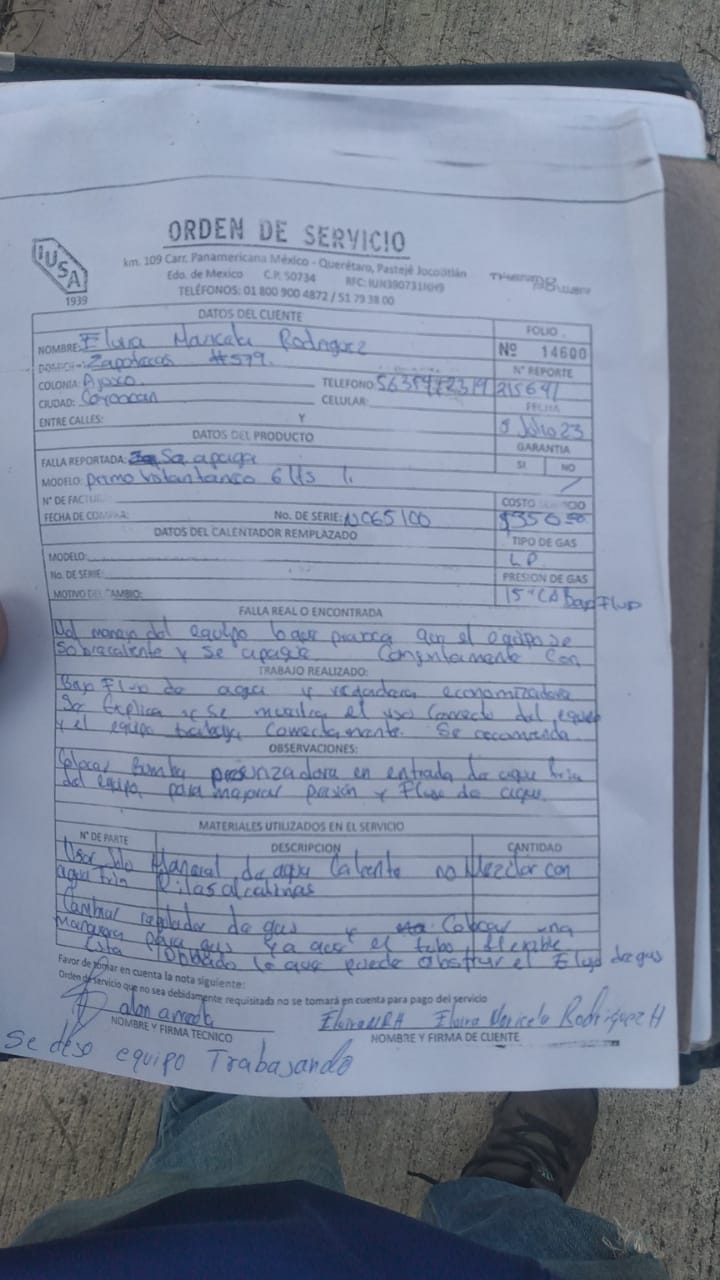 ORDEN DE SERVICIO
IUSA
1939
km. 109 Carr. Panamericana México - Querétaro, Pastejé Jocotitlán
Edo. de Mexico C.P. 50734 RFC:
TELÉFONOS: 01 800 900 4872 / 51 79 38 00
DATOS DEL CLIENTE
FOLIO
NOMBRE: Elvira Maricela Rodriguez
Nº 14600
Zapotecas #579.
N° REPORTE
COLONIA: Ajusco
TELEFONO: 215691
CIUDAD: Coyoacan
CELULAR:
FECHA
ENTRE CALLES: Y
5 Julio 23
DATOS DEL PRODUCTO
GARANTIA
FALLA REPORTADA: Se apaga
SI NO
MODELO: 6 lts
N° DE FACTUR
COSTO
FECHA DE COMPRA: No. DE SERIE: N065100
$350.00
DATOS DEL CALENTADOR REMPLAZADO
TIPO DE GAS
MODELO:
LP
No. DE SERIE:
PRESION DE GAS
MOTIVO DEL CAMBIO:
15" CA Bajo Flujo
FALLA REAL O ENCONTRADA
manejo del equipo que el equipo se
sobrecaliente y se apague. Conjuntamente con
TRABAJO REALIZADO:
Bajo Flujo de agua y regadera economizadora
Se explica y se muestra el uso correcto del equipo
y el equipo trabaja correctamente. Se recomienda
OBSERVACIONES:
Colocar Bomba presurizadora en entrada de agua fria
del equipo, para mejorar presión y Flujo de agua.
MATERIALES UTILIZADOS EN EL SERVICIO
N° DE PARTE DESCRIPCION CANTIDAD
Usar solo Maneral de agua Caliente no Mezclar con
agua fria Pilas alcalinas
Cambiar regulador de gas y Colocar una
manguera para gas ya que el tubo flexible
esta lo que puede obstruir el Flujo de gas
Favor de tomar en cuenta la nota siguiente:
Orden de servicio que no sea debidamente requisitada no se tomará en cuenta para pago del servicio
Elvira Maricela Rodriguez H
NOMBRE Y FIRMA TECNICO
NOMBRE Y FIRMA DE CLIENTE
Se deso equipo Trabajando